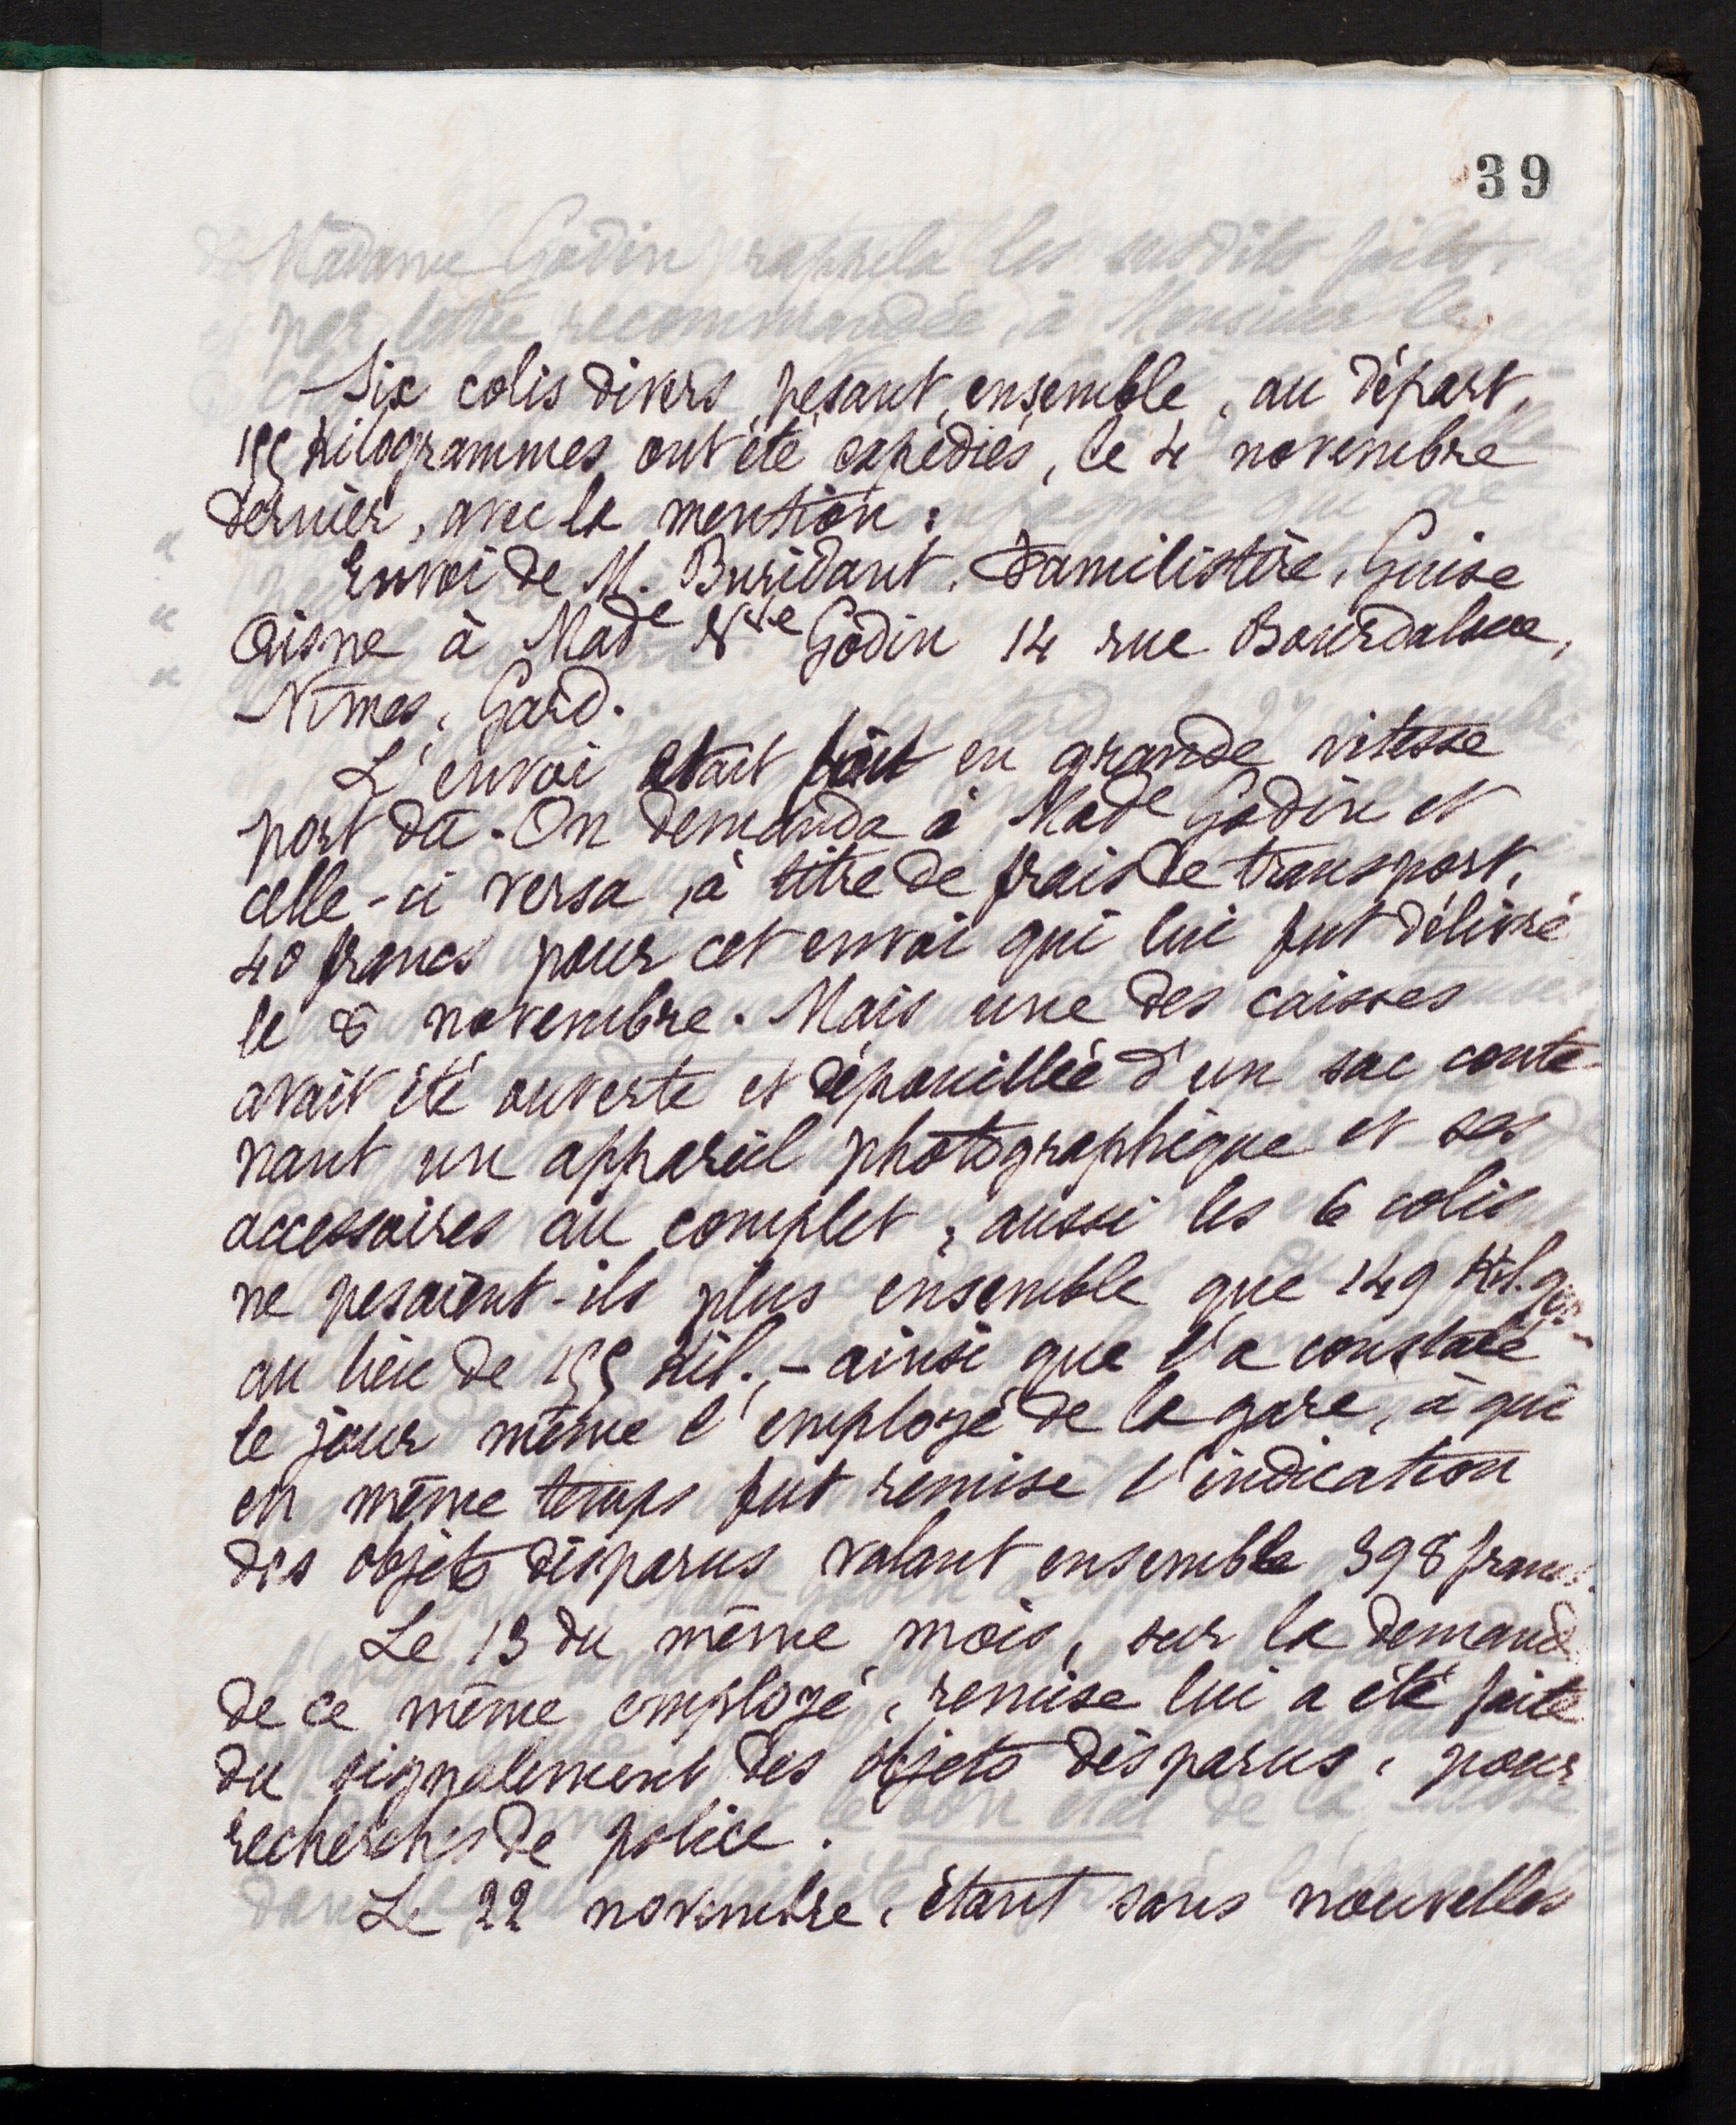 39
Six colis divers, pesant, ensemble, au départ,
155 Kilogrammes, ont été expédiés, le 4 novembre
dernier, avec la mention :
Envoi de M. Buridant, Familistère, Guise
Aisne à Made Vve Godin 14 rue Bourdaloue,
Nîmes, Gard.
L'envoi était fait en grande vitesse
port dû. On demanda à Made Godin et
celle-ci versa, à titre de frais de transport,
40 francs pour cet envoi qui lui fut délivré
le 8 novembre. Mais une des caisses
avait été ouverte et dépouillée d'un sac conte-
nant un appareil photographique et ses
accessoires au complet ; aussi les 6 colis
ne pesaient-ils plus ensemble que 149 Kil.g.
au lieu de 155 Kil., - ainsi que l'a constaté
le jour même l'employé de la gare, à qui
en même temps fut remise l'indication
des objets disparus valant ensemble 398 francs.
Le 13 du même mois, sur la demande
de ce même employé, remise lui a été faite
du signalement des objets disparus, pour
recherches de police.
Le 22 novembre, étant sans nouvelles